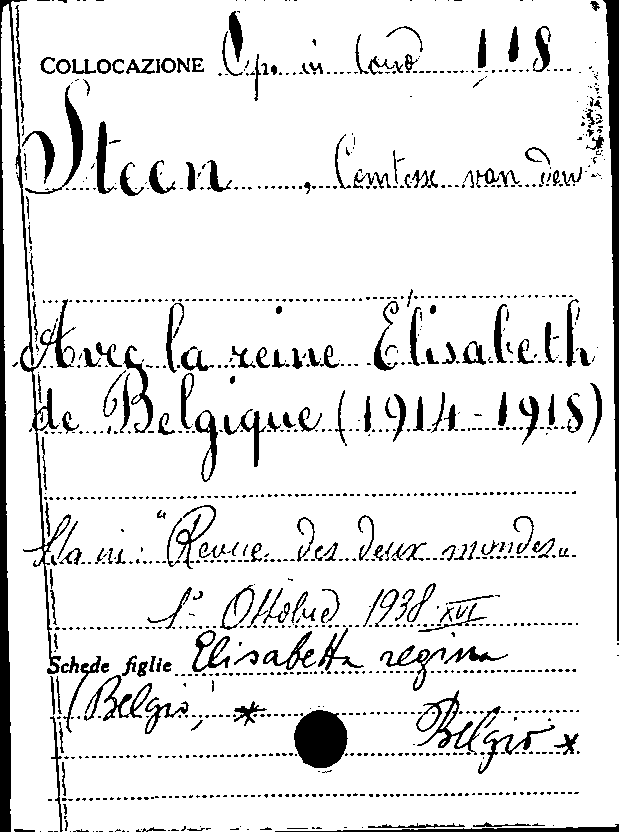 COLLOCAZIONE Cp. in Cons 118
Steen, Comtesse van den
Avec la reine Élisabeth
de Belgique (1914-1918)
Sta in: "Revue des deux mondes„
1° Ottobre 1938 XVI
Schede figlie Elisabetta regina
(Belgio) *
Belgio *